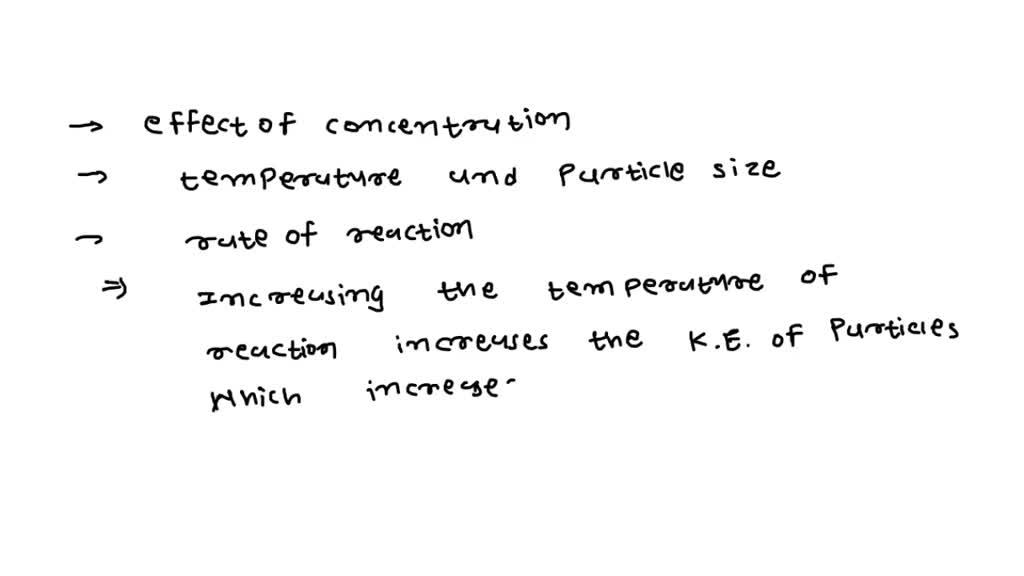 → effect of concentration
→ temperature and Particle size
→ rate of reaction
⇒ Increasing the temperature of
reaction increases the K.E. of Particles
Which increase